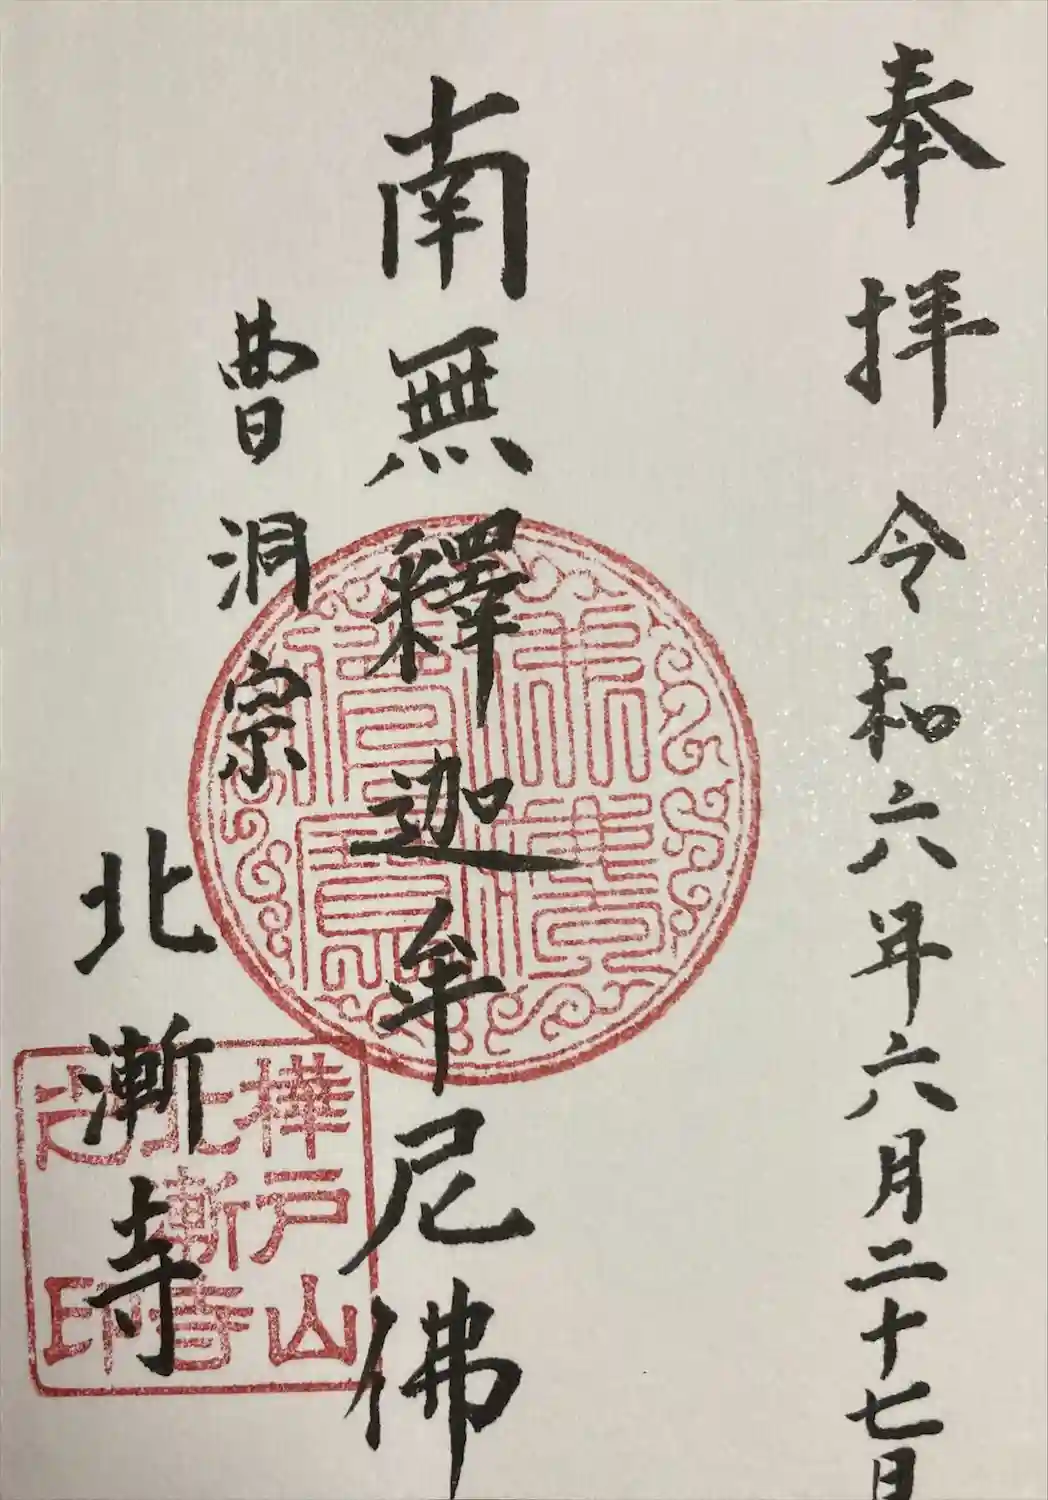 奉拝 令和六年六月二十七日
南無釋迦牟尼佛
曹洞宗
北漸寺
佛法僧寶
樺戸山
北漸寺
之印